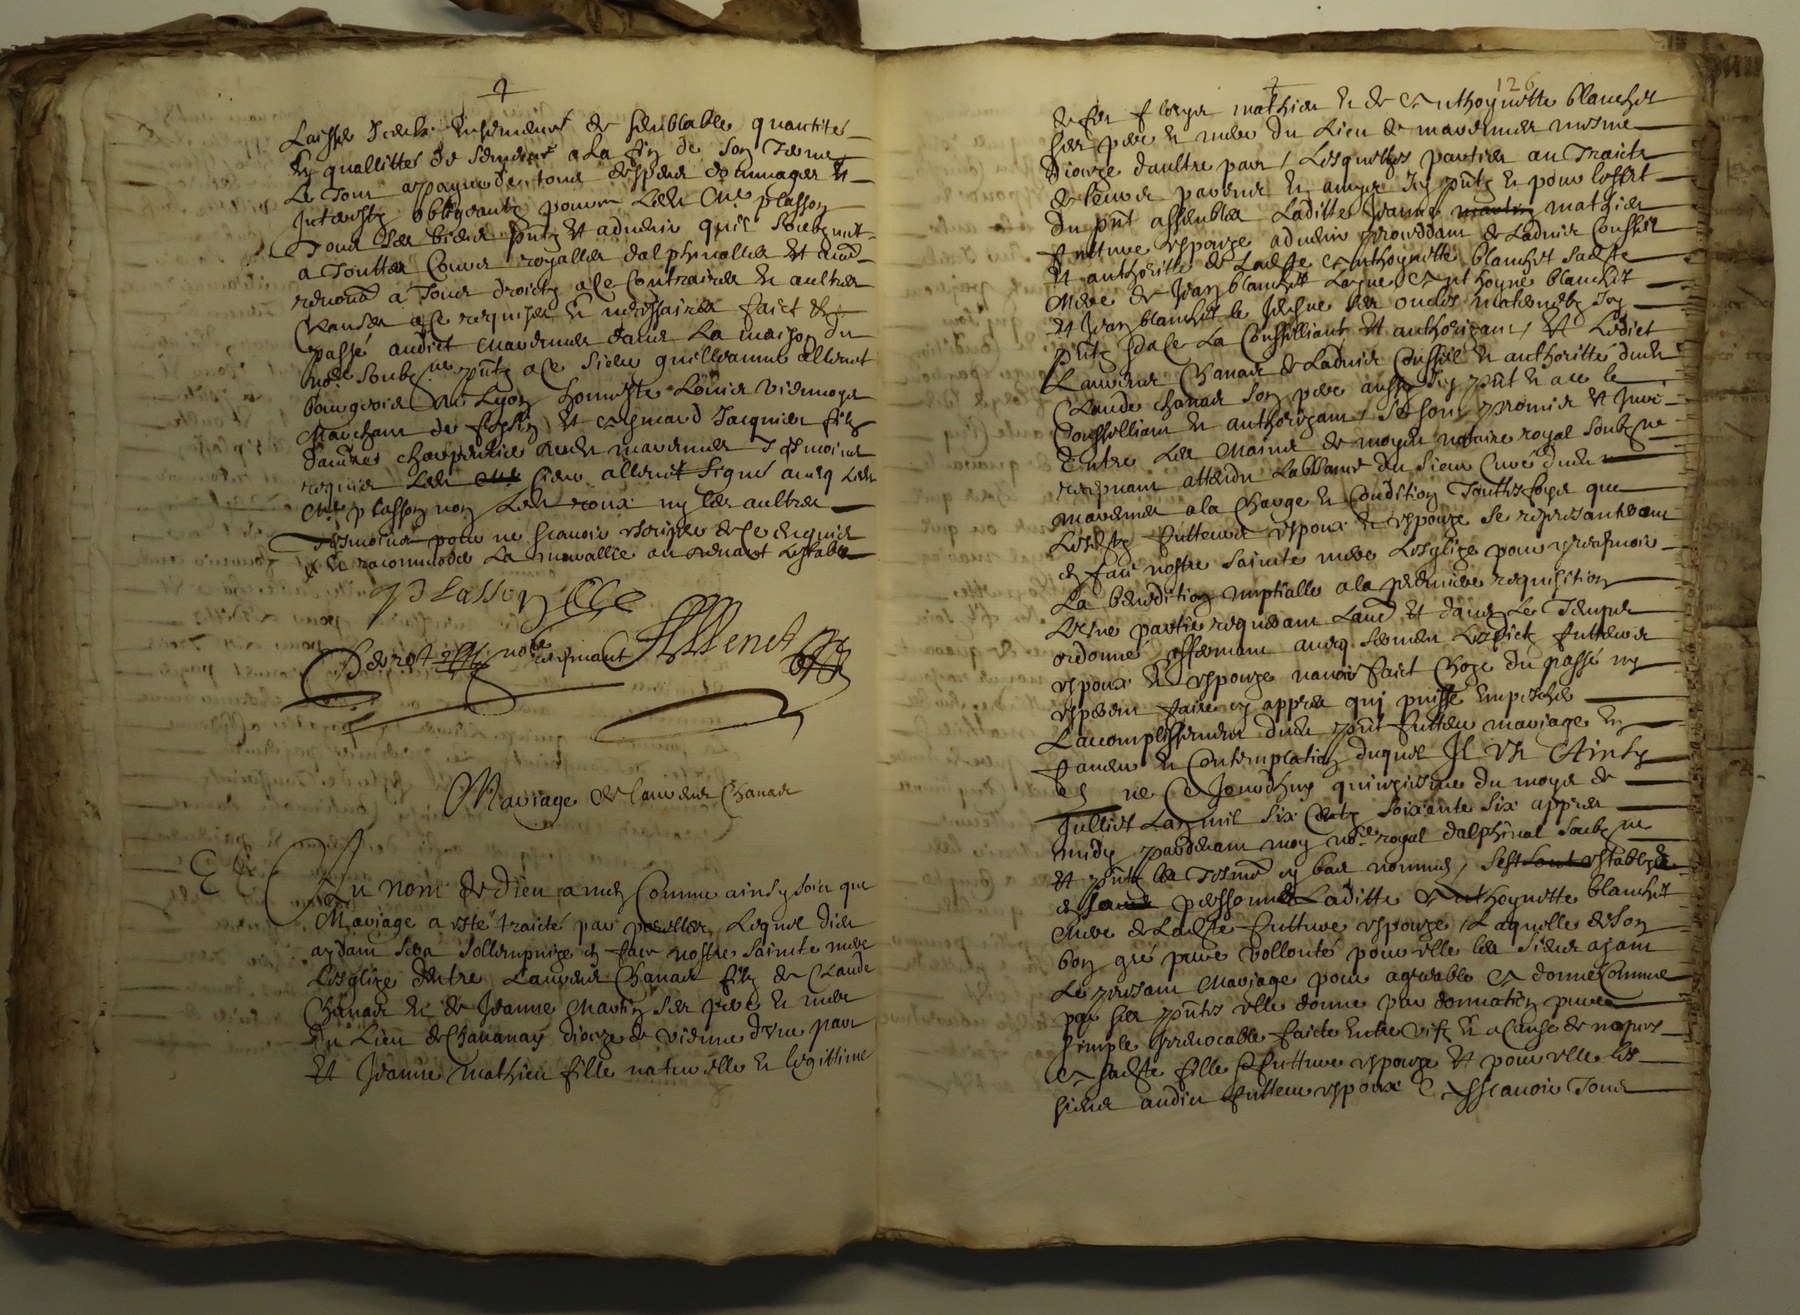 Laisser Icelle ensemenct de semblable quantité
& quallittes de semence a la fin de son Terme
Le Tout a payne de tous despens dommages et
Interestz obligeantz pour Led Me plasson
Tous ses biens pntz et advenir quil soubzmet
a Touttes Cours royalles dalphinalles et
renonce a Tous droictz a ce Contraires et aultres
Clauses a ce requises et necessaires faict et
passé audict Mavernier dans La maison du
nore soubzne pntz a ce sieur guilleaume allenet
bourgeois de Lyon honneste Louis viennoys
Marchant de et Jacquier filz
dandre charpentier dud mavernier Tesmoings
requis Led sieur allenet signé avecq Led
Me plasson non Led roux ny les aultres
Tesmoings pour ne scavoir escripre de ce enquis
& de racommoder La muraillie au devant Lestable
Plasson
nore recepvant Allenet
Mariage de Laurens Chanas
Au nom de dieu amen Comme ainsy soict que
Mariage a esté traicté par parolles Lequel dieu
aydant sera sollempnizé en face nostre saincte mere
Lesglize Entre Laurens Chanas filz de Claude
Chanas et de Jeanne Martin ses pere et mere
du Lieu de Chananay dioceze de vienne dune part
Et Jeanne mathieu fille naturelle et legittime
126
de feu mathieu et de Anthoynette blanchet
ses pere et mere du Lieu de mavernier mesme
dioceze daultre part / Lesquelles parties au Traicte
de Leurs parens et amys Icy pntz et pour Leffect
du pnt assembles Laditte Jeanne martin mathieu
futture espouze advenir proceddant de Ladvis Conseil
et authoritte de Ladte Anthoynette blanchet sadte
Mere de Jean blanchet Laysne Anthoyne blanchet
et Jean blanchet le Jeusne ses oncles maternelz Icy
pntz & a ce La Conseilliant et authorizant / Et Ledict
Laurens Chanas de Ladvis Conseil et authoritté dud
Claude Chanas son pere aussy Icy pnt et a ce le
Conseilliant et authorizant / se sont promis et
Entre Les Mains de moydt notaire royal soubzne
recepvant attendu Labsance du sieur Curé dud
mavernier a la Charge et Condition Touttesfoys que
Lesdtz futteurs espoux et espouze se representeront
en face nostre saincte mere Lesglize pour y recepvoir
La benediction nuptialle a la premiere requisition
Lugne partie requerant Laud et dans Le Temps
ordonné affermant avecq serment Lesdictz futteurs
espoux et espouze navoir faict Choze du passé ny
esperent faire cy apprez quy puisse empescher
Lacomplissement dud pnt futteur mariage En
faveur et Contemplation duquel Il est Ainsy
Est que Ce Jourdhuy quinziesme du moys de
Juillet Lan mil six Centz soixante six apprez
midy pardevant moy nore royal dalphinal soubzne
et pntz les Tesmoins cy bas nommes / sest establye
en personne Laditte Anthoynette blanchet
Mere de Ladte futture espouze / Laquelle de son
bon gré pure vollonté pour elle les siens ayant
Le presant Mariage pour agreable A donné Comme
par ses pntes elle donne par donnation pure
simple Irrevocable faicte entre vifz et a Cause de nopces
A sadte fille futture espouze et pour elle Les
siens audict futteur espoux Ascavoir Tous